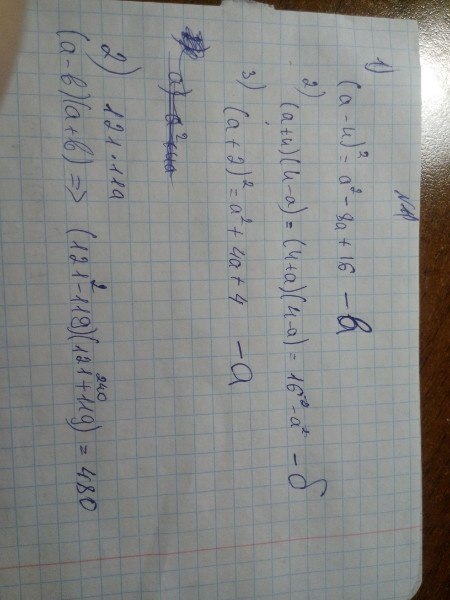 №1
1)
(a-4)² = a² - 8a + 16 - в
2) (a+4)(4-a) = (4+a)(4-a) = 16 - a² - б
3) (a+2)² = a² + 4a + 4 - а
2) 121·119
(a-b)(a+b) => (121-119)(121+119) = 480
2 240